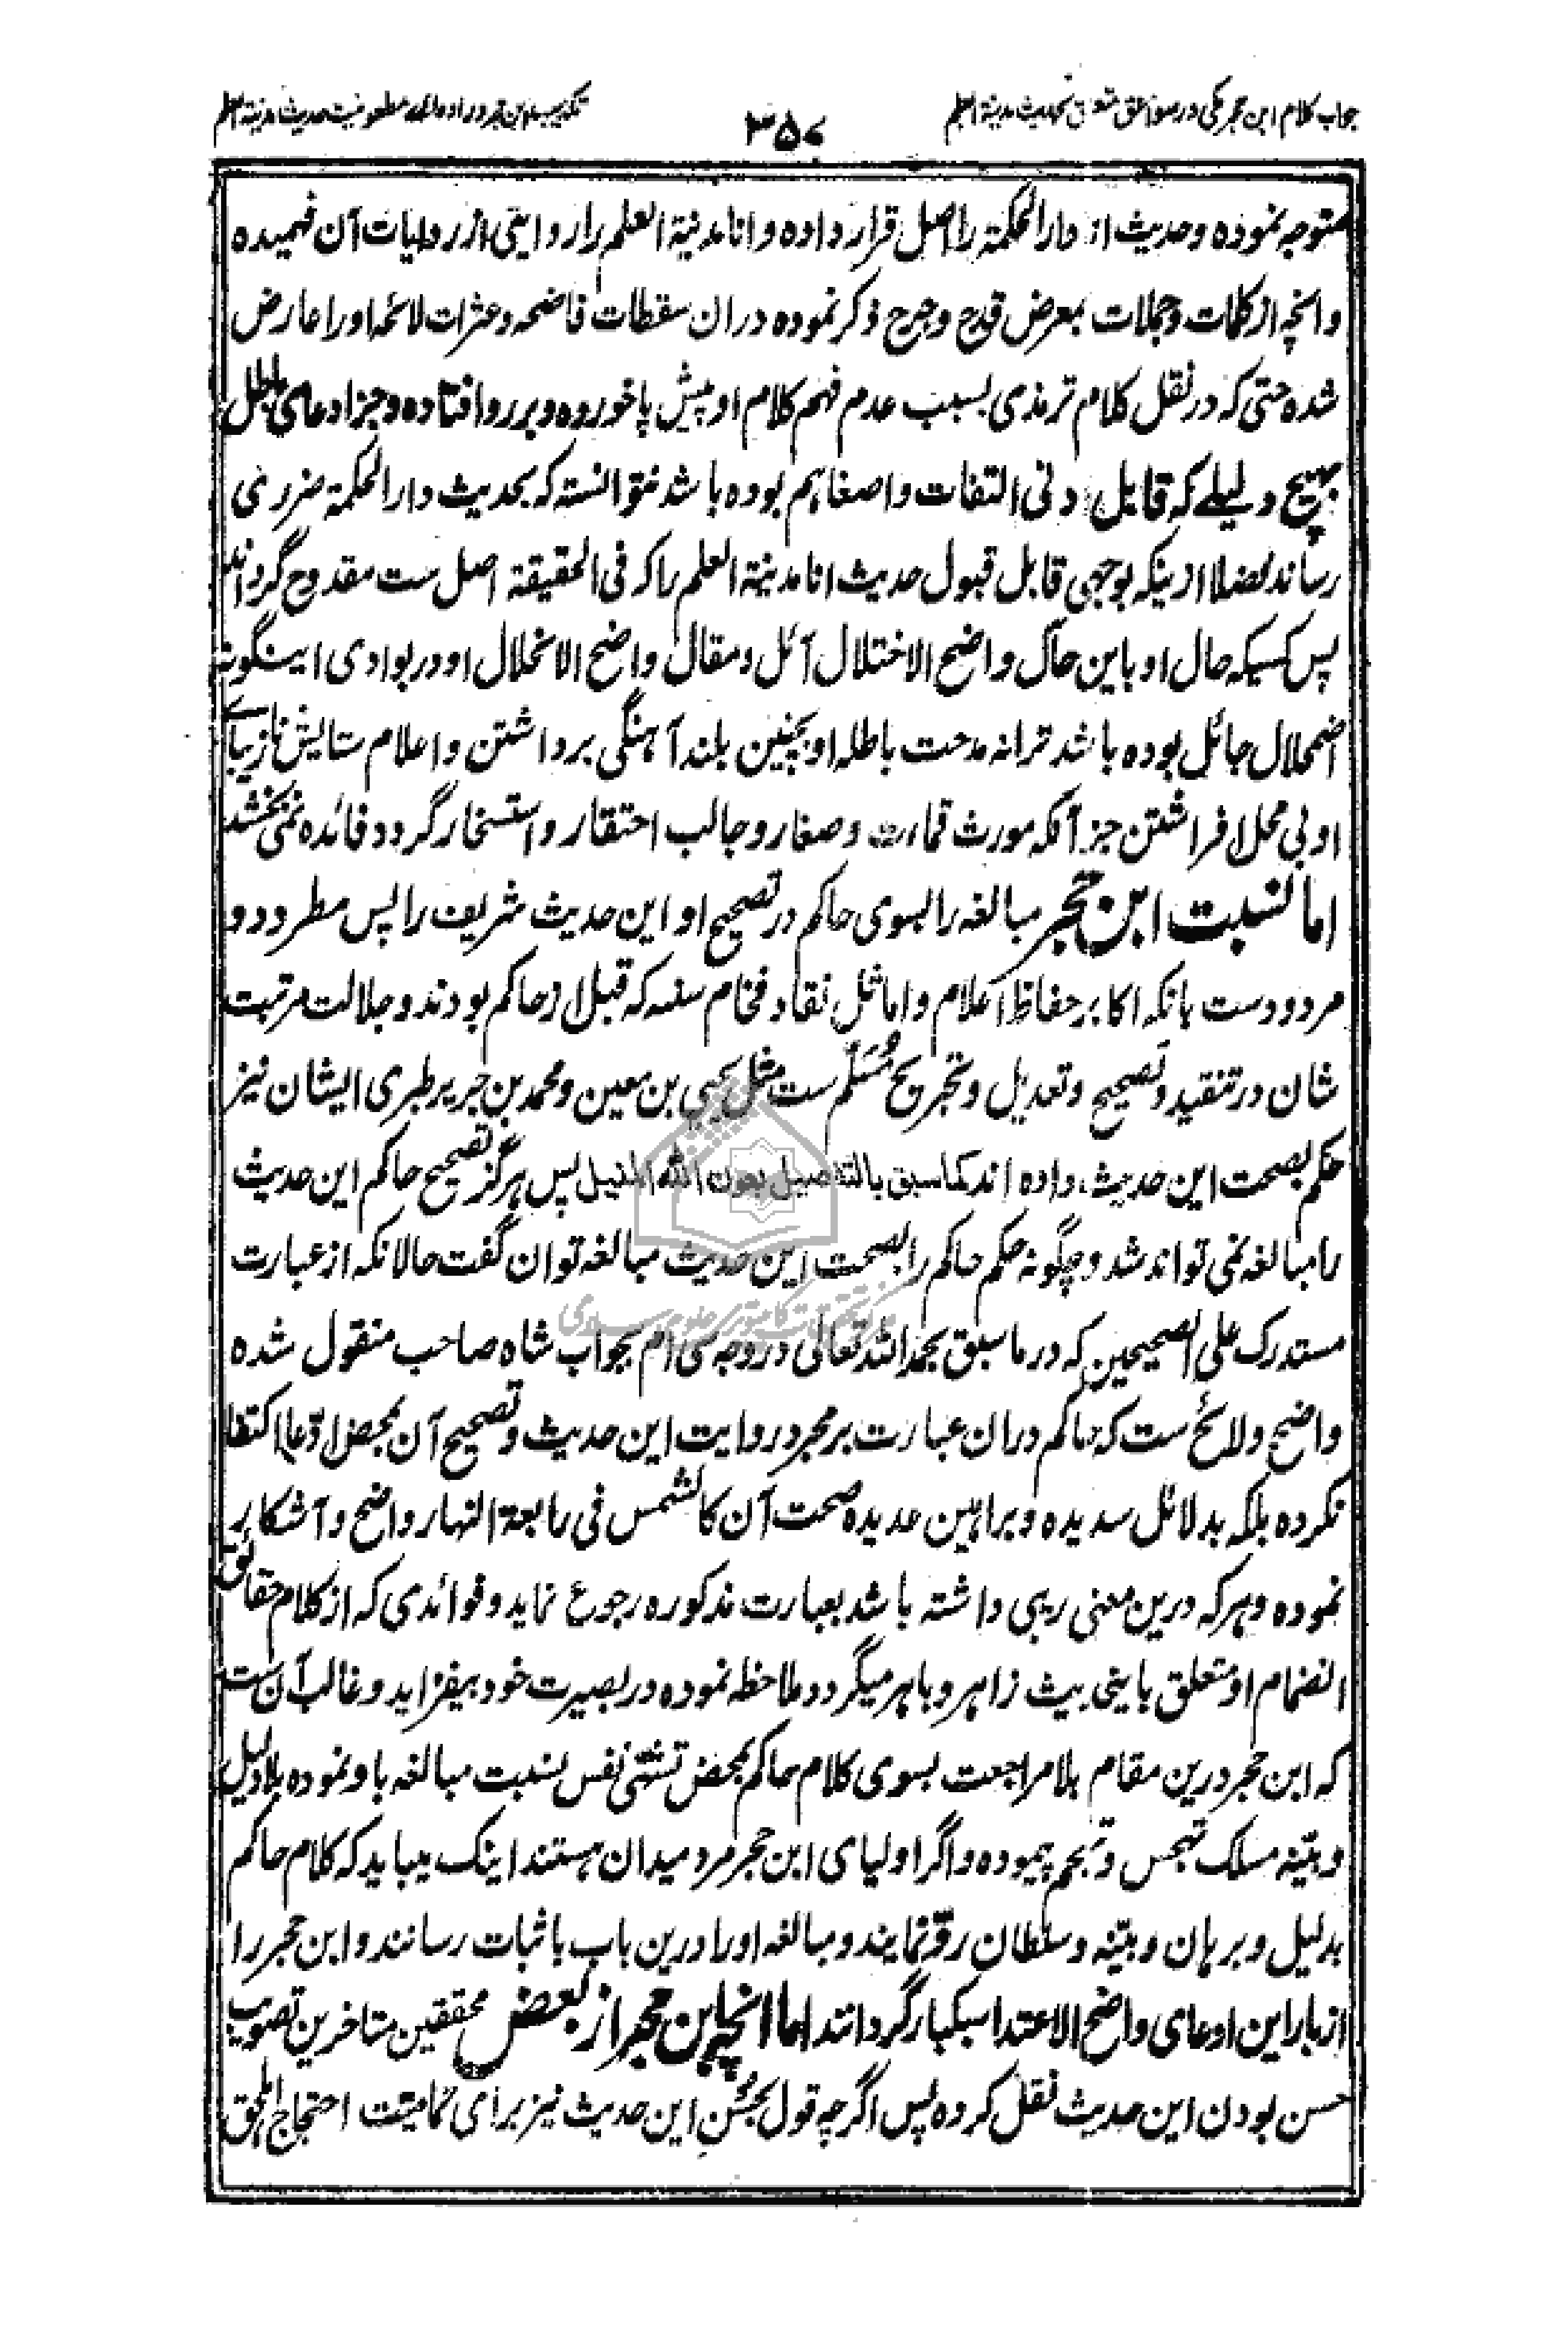 جواب کلام ابن حجر مکی در صواعق متعلق بحدیث مدینة العلم
۳۵۷
تکذیب ابن حجر در ادعای مطعونیت حدیث مدینة العلم
متوجه نموده وحدیث انا دار الحکمة را اصل قرار داده و انا مدینة العلم را روایتی از روایات آن فهمیده
و انچه از کلمات و جملات بمعرض قدح و جرح ذکر نموده دران سقطات فاضحه و عثرات لائحه او را عارض
شده حتی که در نقل کلام ترمذی بسبب عدم فهم کلام او پیش پا خورده و بر رو افتاده و جز ادعای باطل
بهیچ دلیلے که قابل ادنی التفات و اصغا هم بوده باشد نتوانسته که بحدیث دار الحکمة ضرری
رساند فضلا ازینکه بوجهی قابل قبول حدیث انا مدینة العلم را که فی الحقیقة اصل ست مقدوح گرداند
پس کسیکه حال او باین حال واضح الاختلال آئل و مقال واضح الانحلال او در بوادی اینگونه
اضمحلال جائل بوده باشد ترانه مدحت باطله او بچنین بلند آهنگی برداشتن و اعلام ستایش نازیبای
او بی محل افراشتن جز آنکه مورث قماءت و صغار و جالب احتقار و استسخار گردد فائده نمی بخشد
اما نسبت ابن حجر مبالغه را بسوی حاکم در تصحیح او این حدیث شریف را پس مطرود و
مردودست بانکه اکابر حفاظ اعلام و اماثل نقاد فخام سنیه که قبل از حاکم بودند و جلالت مرتبت
شان در تنقید و تصحیح و تعدیل و تجریح مُسَلَّم ست مثل یحیی بن معین و محمد بن جریر طبری ایشان نیز
حکم بصحت این حدیث داده اند کما سبق بالتفاصیل بعون الله المنیل پس هرگز تصحیح حاکم این حدیث
را مبالغه نمی تواند شد و چگونه حکم حاکم را بصحت این حدیث مبالغه توان گفت حالانکه از عبارت
مستدرک علی الصحیحین که در ما سبق بحمد الله تعالی در وجه سی ام بجواب شاه صاحب منقول شده
واضح ولائح ست که حاکم دران عبارت بر مجرد روایت این حدیث و تصحیح آن بمحض ادّعا اکتفا
نکرده بلکه بدلائل سدیده و براهین عدیده صحت آن کالشمس فی رابعة النهار واضح و آشکار
نموده و هر که درین معنی ریبی داشته باشد بعبارت مذکوره رجوع نماید و فوائدی که از کلام حقائق
انضمام او متعلق باینی بیث زاهر و باهر میگردد ملاحظه نموده در بصیرت خود بیفزاید و غالب آن ست
که ابن حجر درین مقام بلا مراجعت بسوی کلام حاکم بمحض تشهّی نفس نسبت مبالغه باو نموده بلا دلیل
و بیّنه مسلک تهجس و تهجم پیموده و اگر اولیای ابن حجر مرد میدان هستند اینک میباید که کلام حاکم
بدلیل و برهان و بیّنه و سلطان ردّ نمایند و مبالغه او را درین باب باثبات رسانند و ابن حجر را
از بار این ادعای واضح الاعتدا سبکبار گردانند اما انچه ابن حجر از بعض محققین متاخرین تصویب
حسن بودن این حدیث نقل کرده پس اگر چه قول بحُسْنِ این حدیث نیز برای تمامیّت احتجاج اهل حق